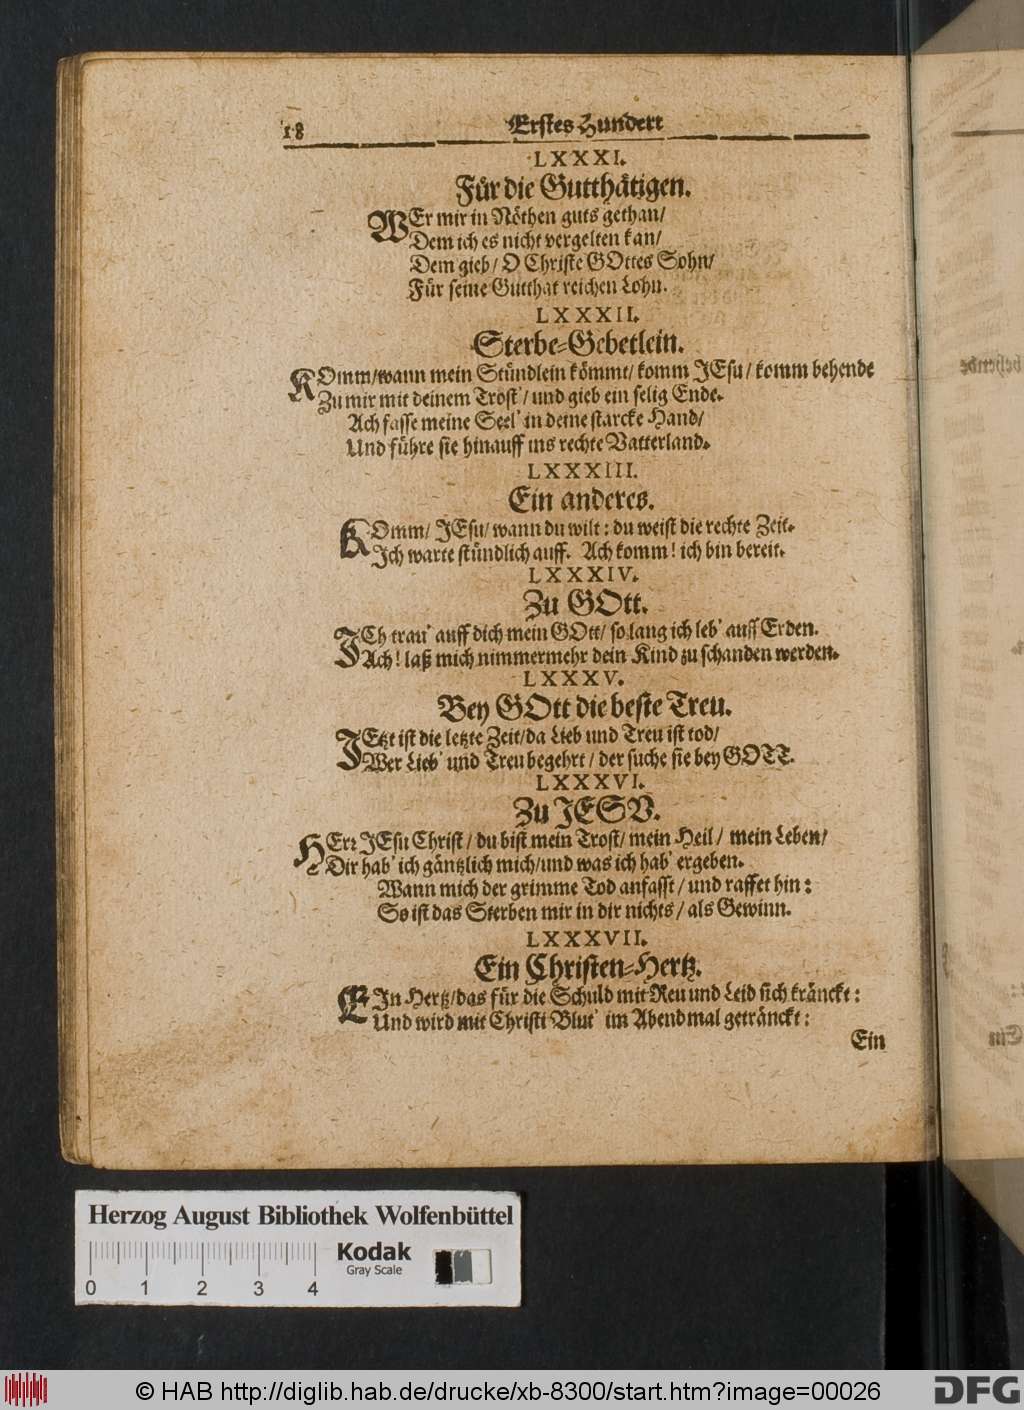 18
Erstes Hundert
LXXXI.
Für die Gutthätigen.
WEr mir in Nöthen guts gethan/
Dem ich es nicht vergelten kan/
Dem gieb/ O Christe GOttes Sohn/
Für seine Gutthat reichen Lohn.
LXXXII.
Sterbe-Gebetlein.
KOmm/wann mein Stündlein kömmt/ komm JEsu/ komm behende
Zu mir mit deinem Trost/ und gieb ein selig Ende.
Ach fasse meine Seel' in deine starcke Hand/
Und führe sie hinauff ins rechte Vatterland.
LXXXIII.
Ein anderes.
KOmm/ JEsu/ wann du wilt: du weist die rechte Zeit.
Ich warte stündlich auff. Ach komm! ich bin bereit.
LXXXIV.
Zu GOtt.
ICh trau' auff dich mein GOtt/ so lang ich leb' auff Erden.
Ach! laß mich nimmermehr dein Kind zu schanden werden.
LXXXV.
Bey GOtt die beste Treu.
IEtzt ist die letzte Zeit/da Lieb und Treu ist tod/
Wer Lieb' und Treu begehrt/ der suche sie bey GOTT.
LXXXVI.
Zu JESU.
HErr JEsu Christ/ du bist mein Trost/ mein Heil/ mein Leben/
Dir hab' ich gäntzlich mich/und was ich hab' ergeben.
Wann mich der grimme Tod anfasst/ und raffet hin:
So ist das Sterben mir in dir nichts/ als Gewinn.
LXXXVII.
Ein Christen-Hertz.
EIn Hertz/das für die Schuld mit Reu und Leid sich kränckt:
Und wird mit Christi Blut' im Abendmal getränckt:
Ein
Herzog August Bibliothek Wolfenbüttel
Kodak
Gray Scale
0 1 2 3 4
© HAB http://diglib.hab.de/drucke/xb-8300/start.htm?image=00026
DFG